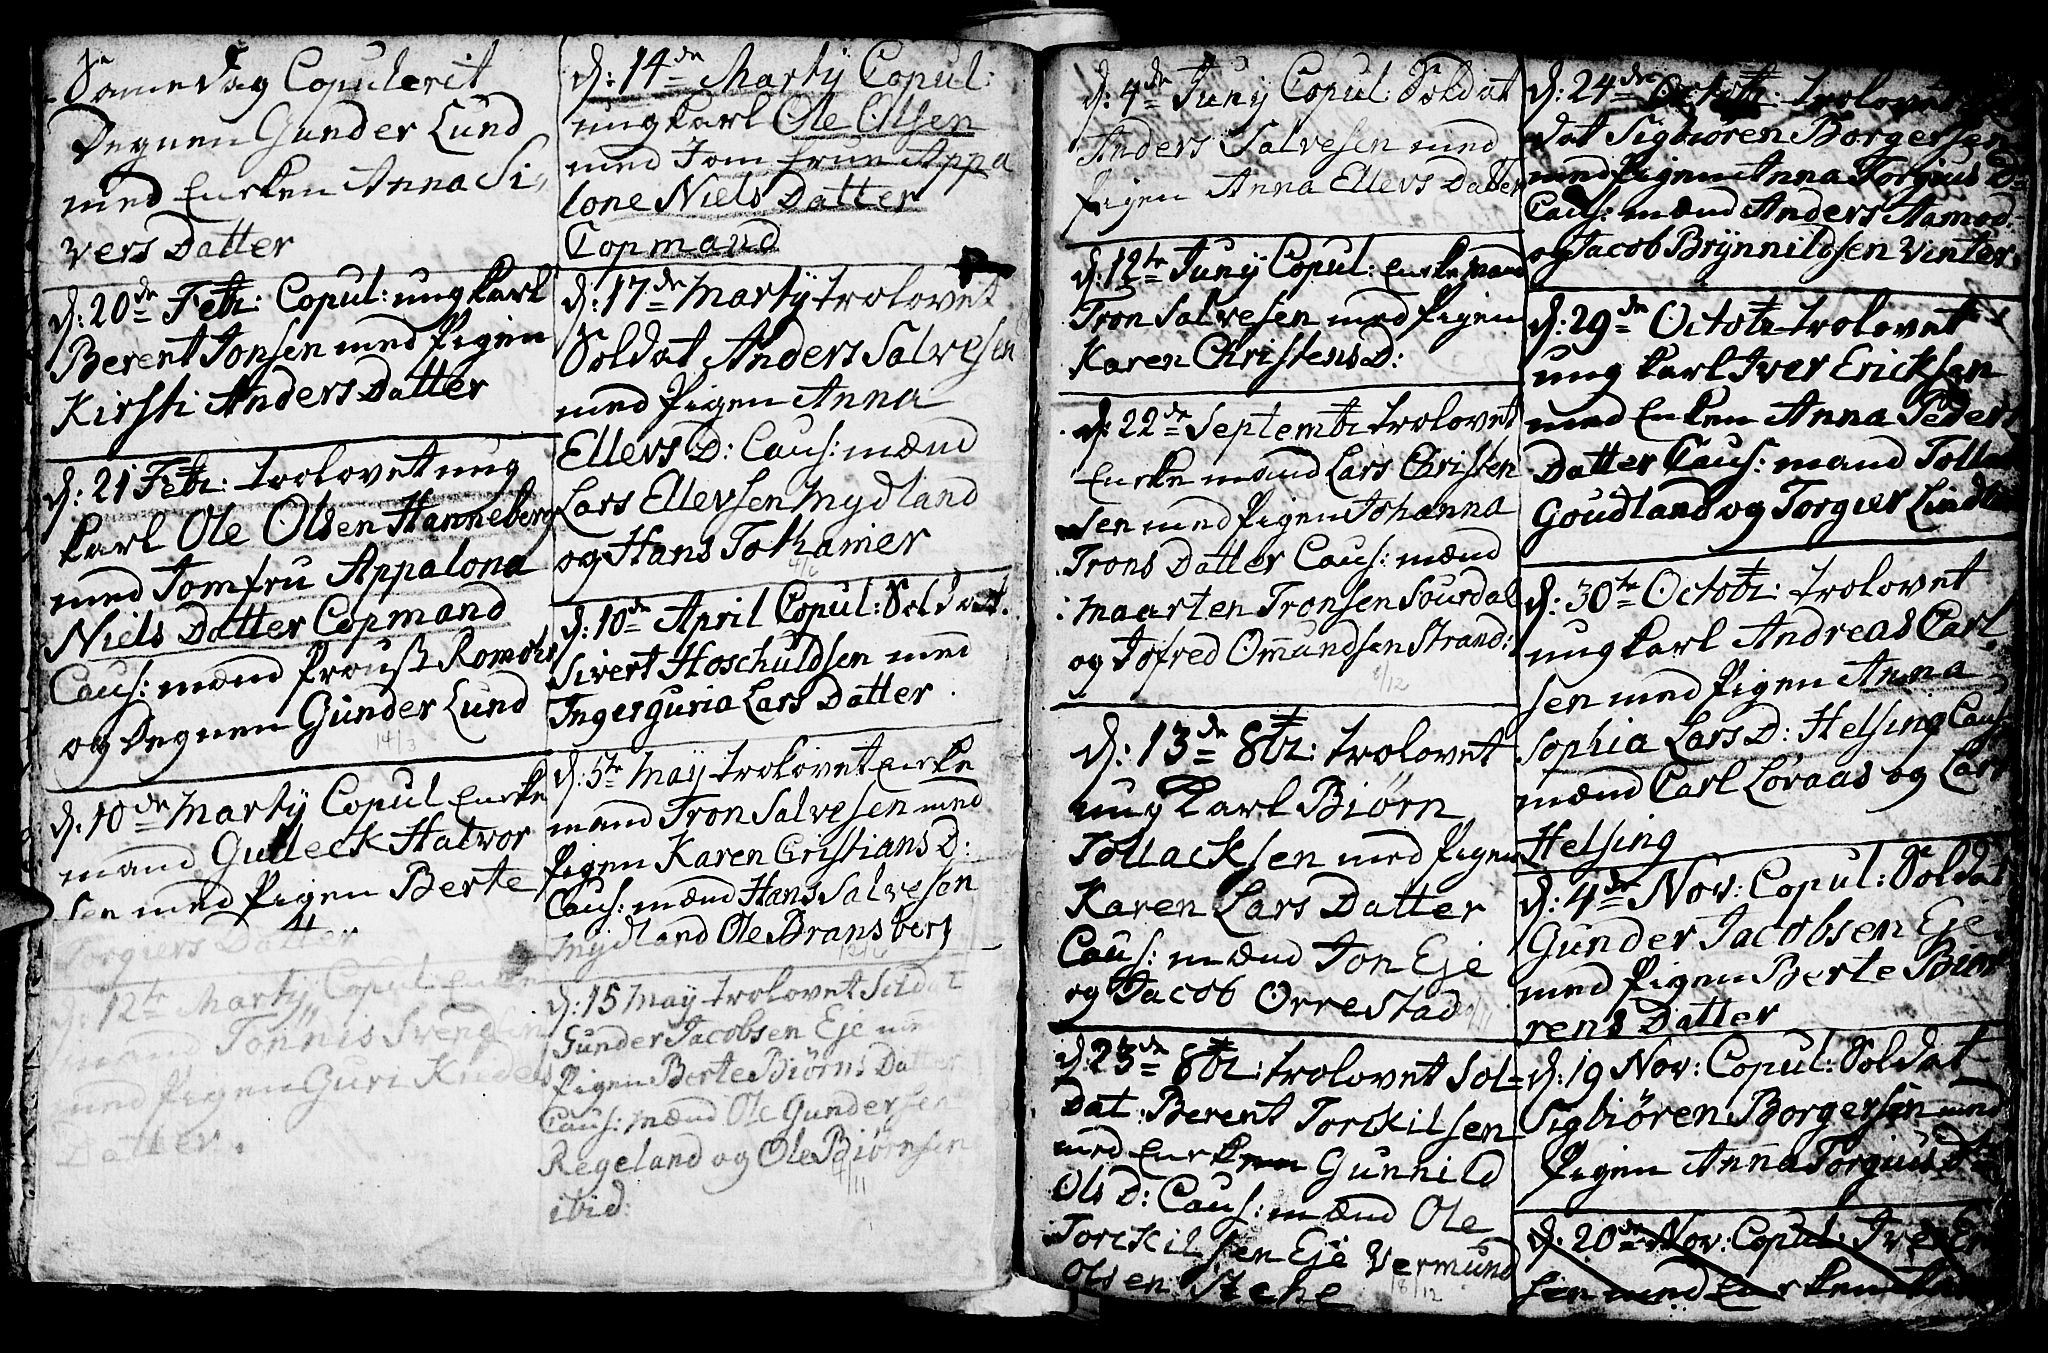 Same dag Copulerit
Degnen Gunder Lund
med Encken Anna Si-
vers Datter
d: 20de Febr: Copul: ungkarl
Berent Jonsen med Pigen
Kirsti Anders Datter
d: 21 Febr: trolovet ung
karl Ole Olsen Hanneberg
med Jomfru Appalona
Niels Datter Copmand
Caus: mænd Proust Romöes
og Degnen Gunder Lund
14/3
d: 10de Martij Copul Encke
mand Gulleck Halvor
sen med Pigen Berte
Torgiers Datter
d: 12te Martij Copul Encke
mand Tönnis Svendsen
med Pigen Guri Knuds
Datter.
d: 14de Martij Copul:
ungkarl Ole Olsen
med Jomfrue Appa
lone Niels Datter
Copmand
d: 17de Martij trolovet
Soldat Anders Salvesen
med Pigen Anna
Ellevs D: Caus: mænd
Lars Ellevsen Mydland
og Hans Tothamer
4/6
d: 10de April Copul: Soldat
Sivert Hoschuldsen med
Ingerguria Lars Datter
d: 5te Maij trolovet Encke
mand Tron Salvesen med
Pigen Karen Cristians D:
Caus: mænd Hans Salvesen
Mydland Ole Bransberg
12/6
d: 15 Maij trolovet Soldat
Gunder Jacobsen Eje med
Pigen Berte Biörns Datter
Caus: mænd Ole Gundersen
Regeland og Ole Biörnsen
4/11
ibid:
d: 4de Junij Copul: Soldat
Anders Salvesen med
Pigen Anna Ellevs Datter
d: 12te Junij Copul: Enckemand
Tron Salvesen med Pigen
Karen Christens D:
d: 22de Septembr trolovet
Enckemand Lars Christen
sen med Pigen Johanna
Trons Datter Caus: mænd
Maarten Tronsen Sourdal
og Jofred Omundsen Strand:
8/12
d: 13de 8br: trolovet
ung karl Biörn
Tollacksen med Pigen
Karen Lars Datter
Caus: mænd Jon Eje
og Jacob Orrestad
d: 23de 8br: trolovet Sol-
dat: Berent Torckilsen
med Encken Gunnild
Ols D: Caus: mænd Ole
Torckilsen Eje Vermund
Olsen Stene
18/12
d: 24de Octobr: trolovet
dat Sigbiören Borgersen
med Pigen Anna Torgius D
Caus: mænd Anders Aamod
og Jacob Brynnildsen Vinter
d: 29de Octobr trolovet
ung karl Iver Ericksen
med Encken Anna Peders
Datter Caus: mænd
Goudland og Torgier
d: 30te Octobr: trolovet
ung karl Andreas Carl
sen med Pigen Anna
Sophia Lars D: Helsing Caus:
mænd Carl Løvaas og Lars
Helsing
d: 4de Nov: Copul: Soldat
Gunder Jacobsen Eje
med Pigen Berte Biör
rens Datter
d: 19 Nov: Copul: Soldat
Sigbiören Borgersen med
Pigen Anna Torgius Dtr
d: 20de Nov: Copul: Iver Erick
sen med Encken